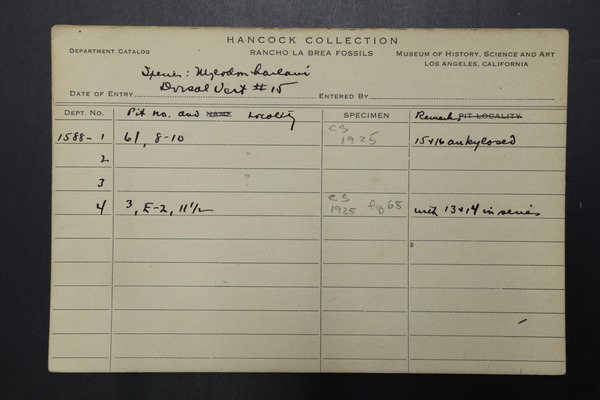 HANCOCK COLLECTION
DEPARTMENT CATALOG RANCHO LA BREA FOSSILS MUSEUM OF HISTORY, SCIENCE AND ART
LOS ANGELES, CALIFORNIA
Species: Mylodon harlani
Dorsal Vert # 15
DATE OF ENTRY ENTERED BY
DEPT. NO. Pit no. and NAME Locality SPECIMEN Remarks PIT LOCALITY
1588-1 61, 8-10 CS 1925 15+16 ankylosed
2 "
3 ?
4 3, E-2, 11 1/2 CS 1925 fig 68 with 13+14 in series